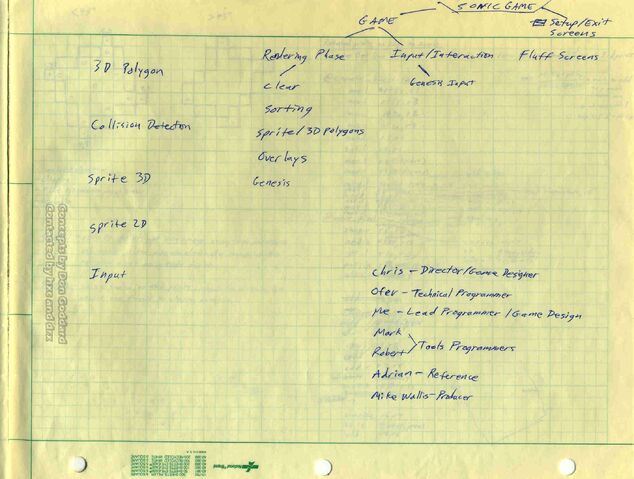 SONIC GAME
GAME
Setup/Exit
Screens
Rendering Phase
Input/Interaction
Fluff Screens
3D Polygon
Clear
Genesis Input
Sorting
Collision Detection
Sprite/3D Polygons
Overlays
Sprite 3D
Genesis
Sprite 2D
Input
Chris - Director/Game Designer
Ofer - Technical Programmer
Me - Lead Programmer / Game Design
Mark
Robert
Tools Programmers
Adrian - Reference
Mike Wallis - Producer
Concepts by Don Goddard
Contacted by hxc and drx
National Brand